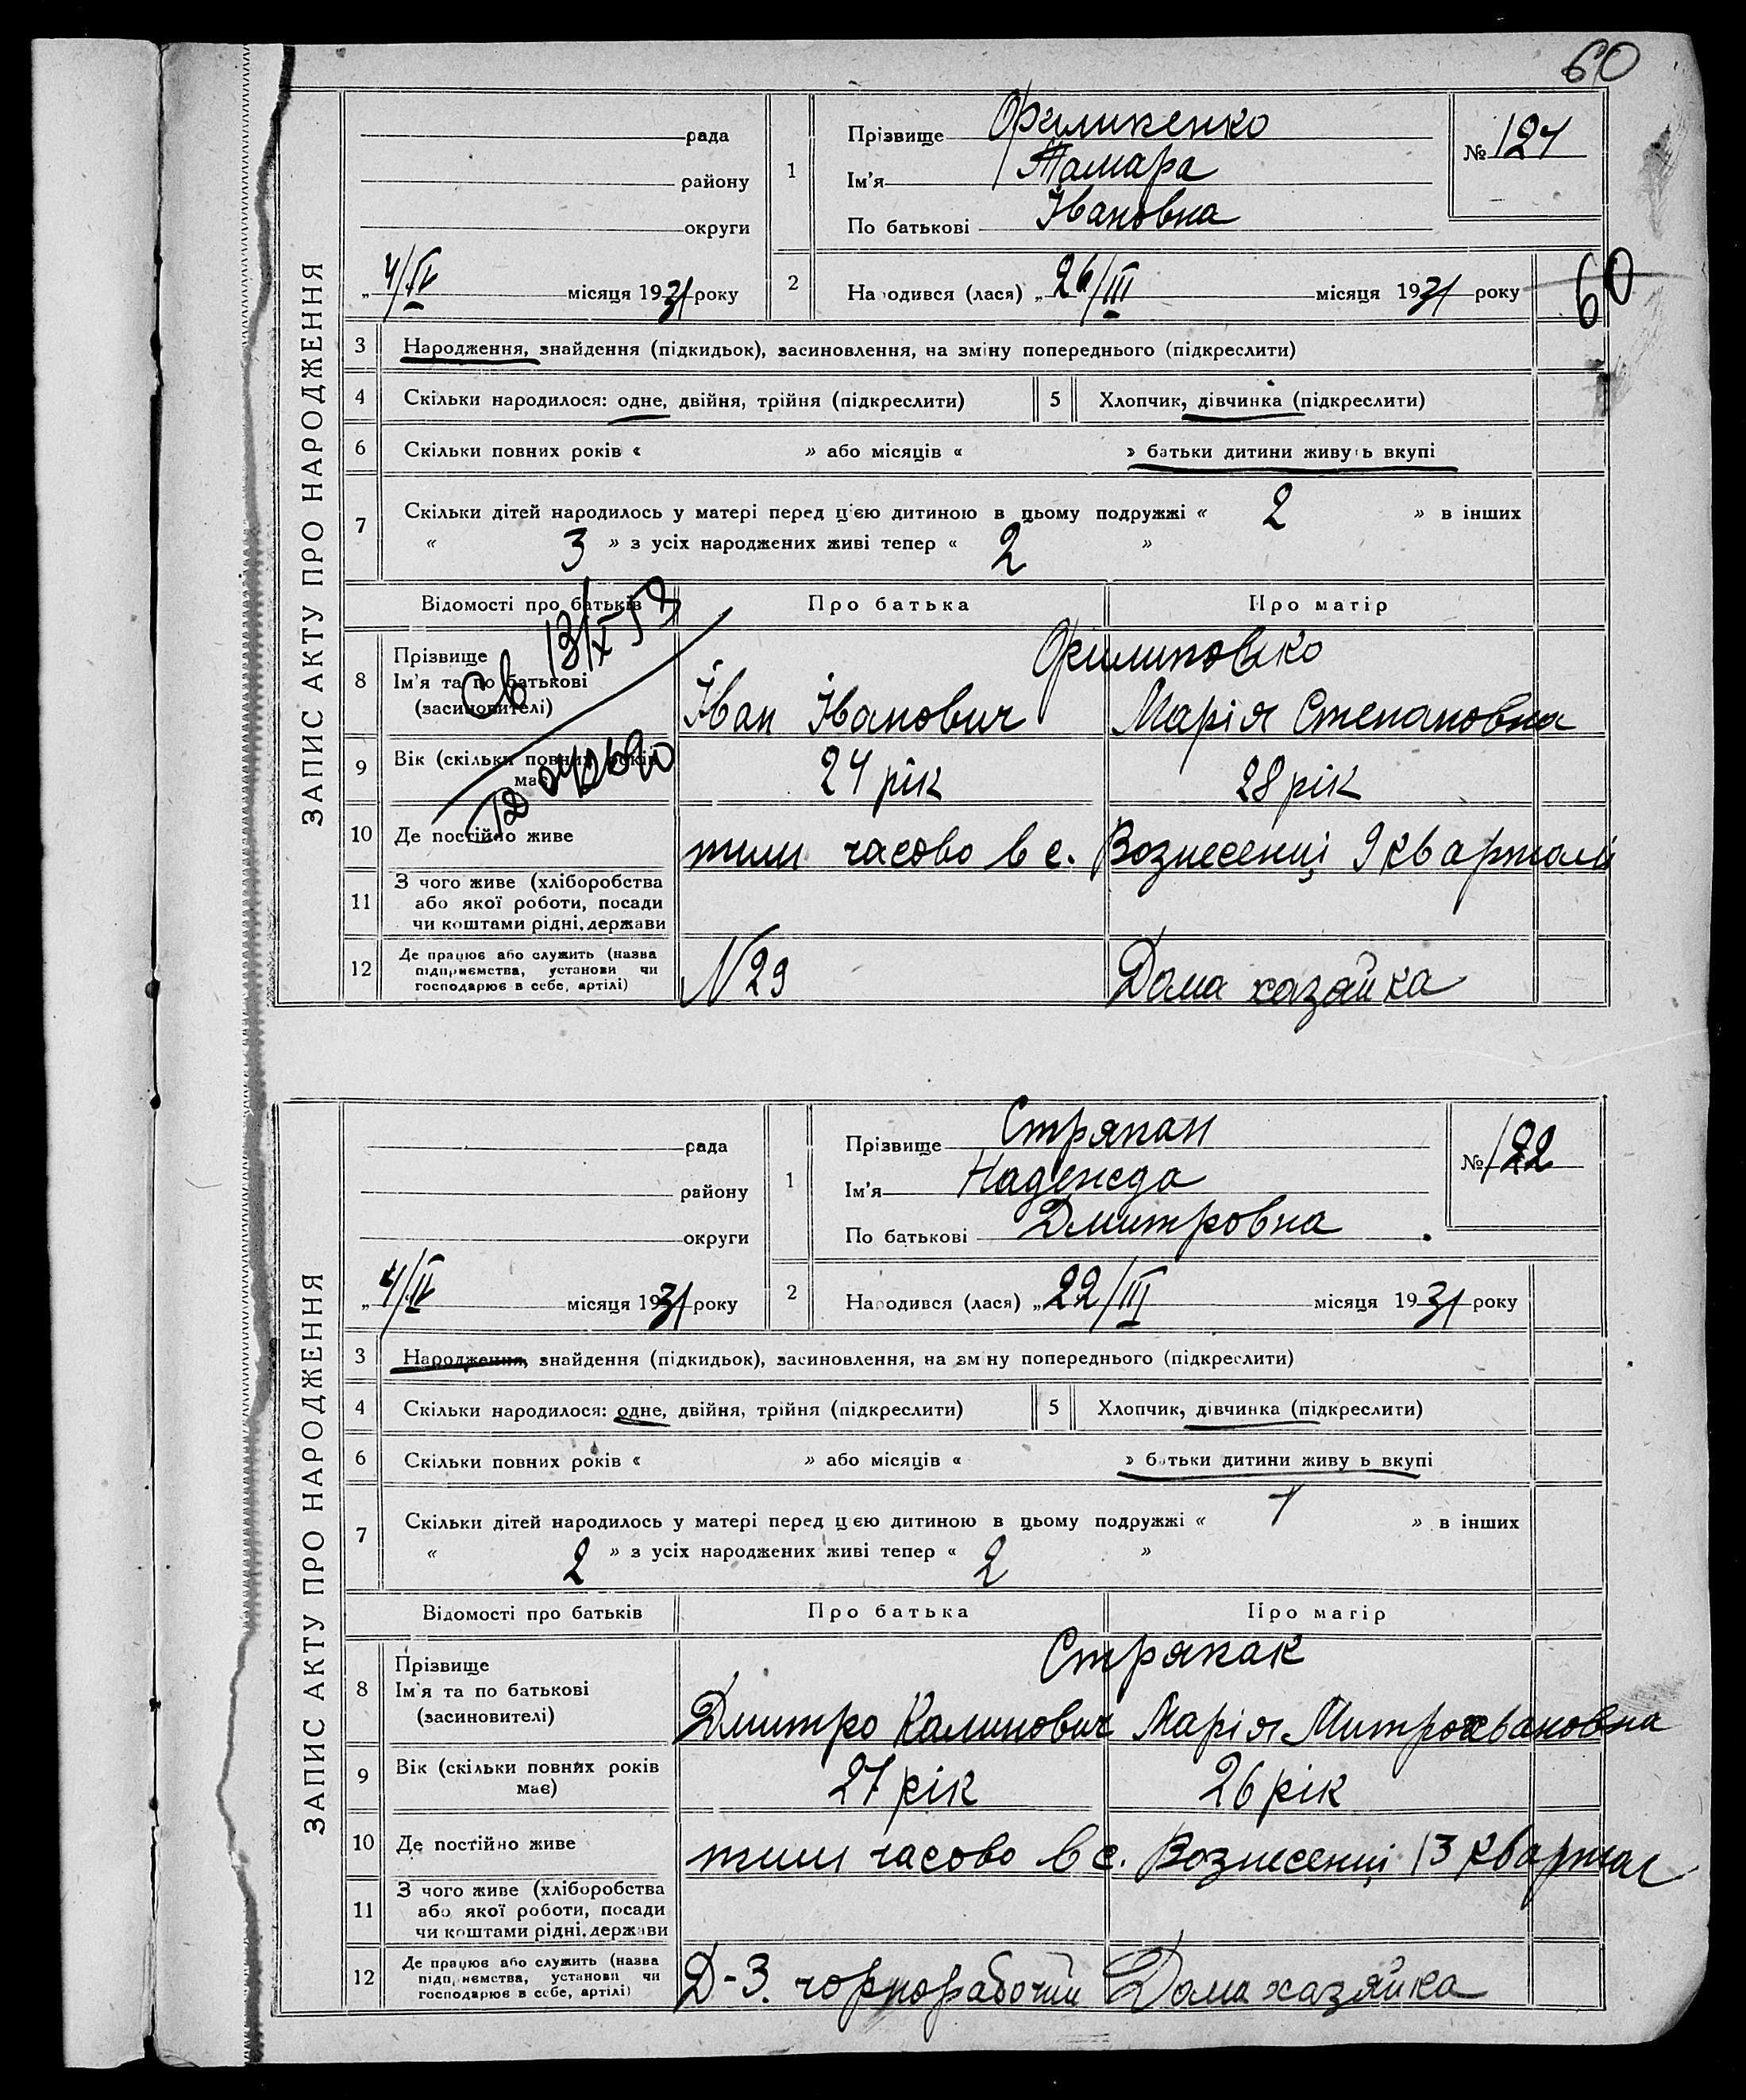 60
ЗАПИС АКТУ ПРО НАРОДЖЕННЯ
рада
району
округи
4/IV місяця 1931 року
1
Прізвище
Ім'я Тамара
По батькові Івановна
№ 121
2
Народився (лася) „26/III місяця 1931 року
60
3 Народження, знайдення (підкидьок), засиновлення, на зміну попереднього (підкреслити)
4 Скільки народилося: одне, двійня, трійня (підкреслити) 5 Хлопчик, дівчинка (підкреслити)
6 Скільки повних років « » або місяців « » батьки дитини живуть вкупі
7 Скільки дітей народилось у матері перед ц'єю дитиною в цьому подружжі « 2 » в інших
« 3 » з усіх народжених живі тепер « 2 »
Відомості про батьків Про батька Про матір
13/X 53
8 Прізвище
Ім'я та по батькові
(засиновителі)
Св
Іван Іванович Марія Степановна
9 Вік (скільки повних років має)
24 рік 28 рік
10 Де постійно живе
тим часово в с. Вознесенці 9 квартал
11 З чого живе (хліборобства
або якої роботи, посади
чи коштами рідні, держави
12 Де працює або служить (назва
підприємства, установи чи
господарює в себе, артілі)
N 29 Дома хазяйка
ЗАПИС АКТУ ПРО НАРОДЖЕННЯ
рада
району
округи
4/IV місяця 1931 року
1
Прізвище Стряпан
Ім'я Надежда
По батькові Дмитровна
№ 122
2
Народився (лася) „22/III місяця 1931 року
3 Народження, знайдення (підкидьок), засиновлення, на зміну попереднього (підкреслити)
4 Скільки народилося: одне, двійня, трійня (підкреслити) 5 Хлопчик, дівчинка (підкреслити)
6 Скільки повних років « » або місяців « » батьки дитини живу ь вкупі
7 Скільки дітей народилось у матері перед цією дитиною в цьому подружжі « 1 » в інших
« 2 » з усіх народжених живі тепер « 2 »
Відомості про батьків Про батька Про матір
Стряпак
8 Прізвище
Ім'я та по батькові
(засиновителі)
Дмитро Калинович Марія Митрохвановна
9 Вік (скільки повних років
має)
27 рік 26 рік
10 Де постійно живе
тим часово в с. Вознесенці 13 квартал
11 З чого живе (хліборобства
або якої роботи, посади
чи коштами рідні, держави
12 Де працює або служить (назва
підприємства, установи чи
господарює в себе, артілі)
Д-З. чорнорабочий Дома хазяйка